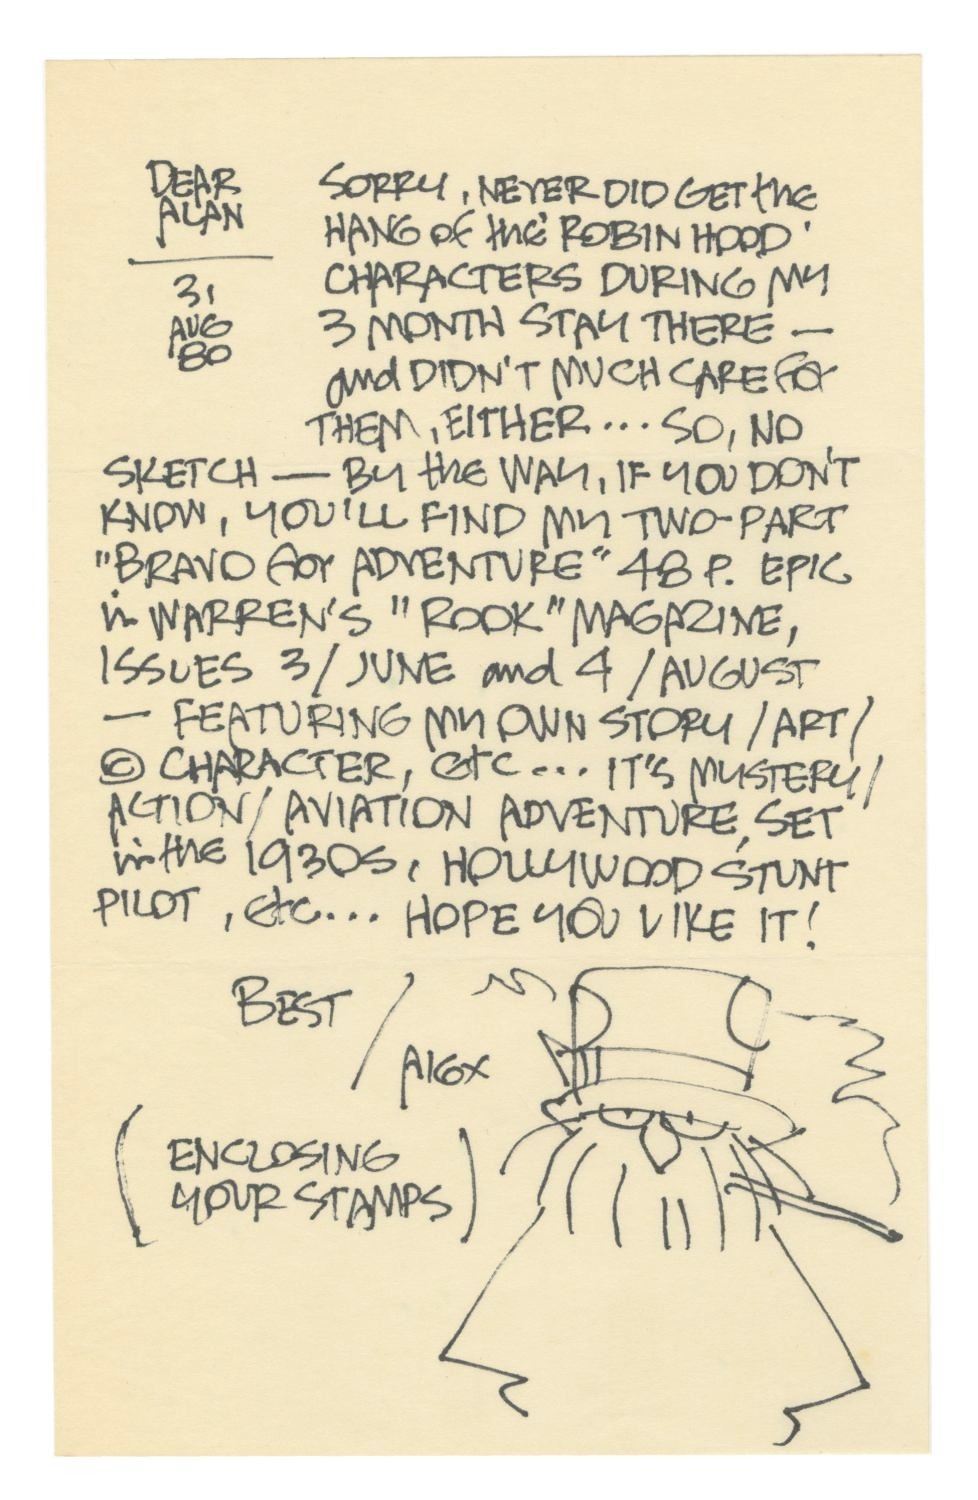 DEAR
ALAN
31
AUG
'80
SORRY, NEVER DID GET the
HANG of the 'ROBIN HOOD'
CHARACTERS DURING MY
3 MONTH STAY THERE —
and DIDN'T MUCH CARE for
THEM, EITHER... SO, NO
SKETCH — BY the WAY, IF YOU DON'T
KNOW, YOU'LL FIND MY TWO-PART
"BRAVO for ADVENTURE" 48 P. EPIC
in WARREN'S "ROOK" MAGAZINE,
ISSUES 3/JUNE and 4/AUGUST
— FEATURING MY OWN STORY/ART/
© CHARACTER, etc... IT'S MYSTERY/
ACTION/AVIATION ADVENTURE, SET
in the 1930s, HOLLYWOOD STUNT
PILOT, etc... HOPE YOU LIKE IT!
BEST/
Alex
(ENCLOSING
YOUR STAMPS)